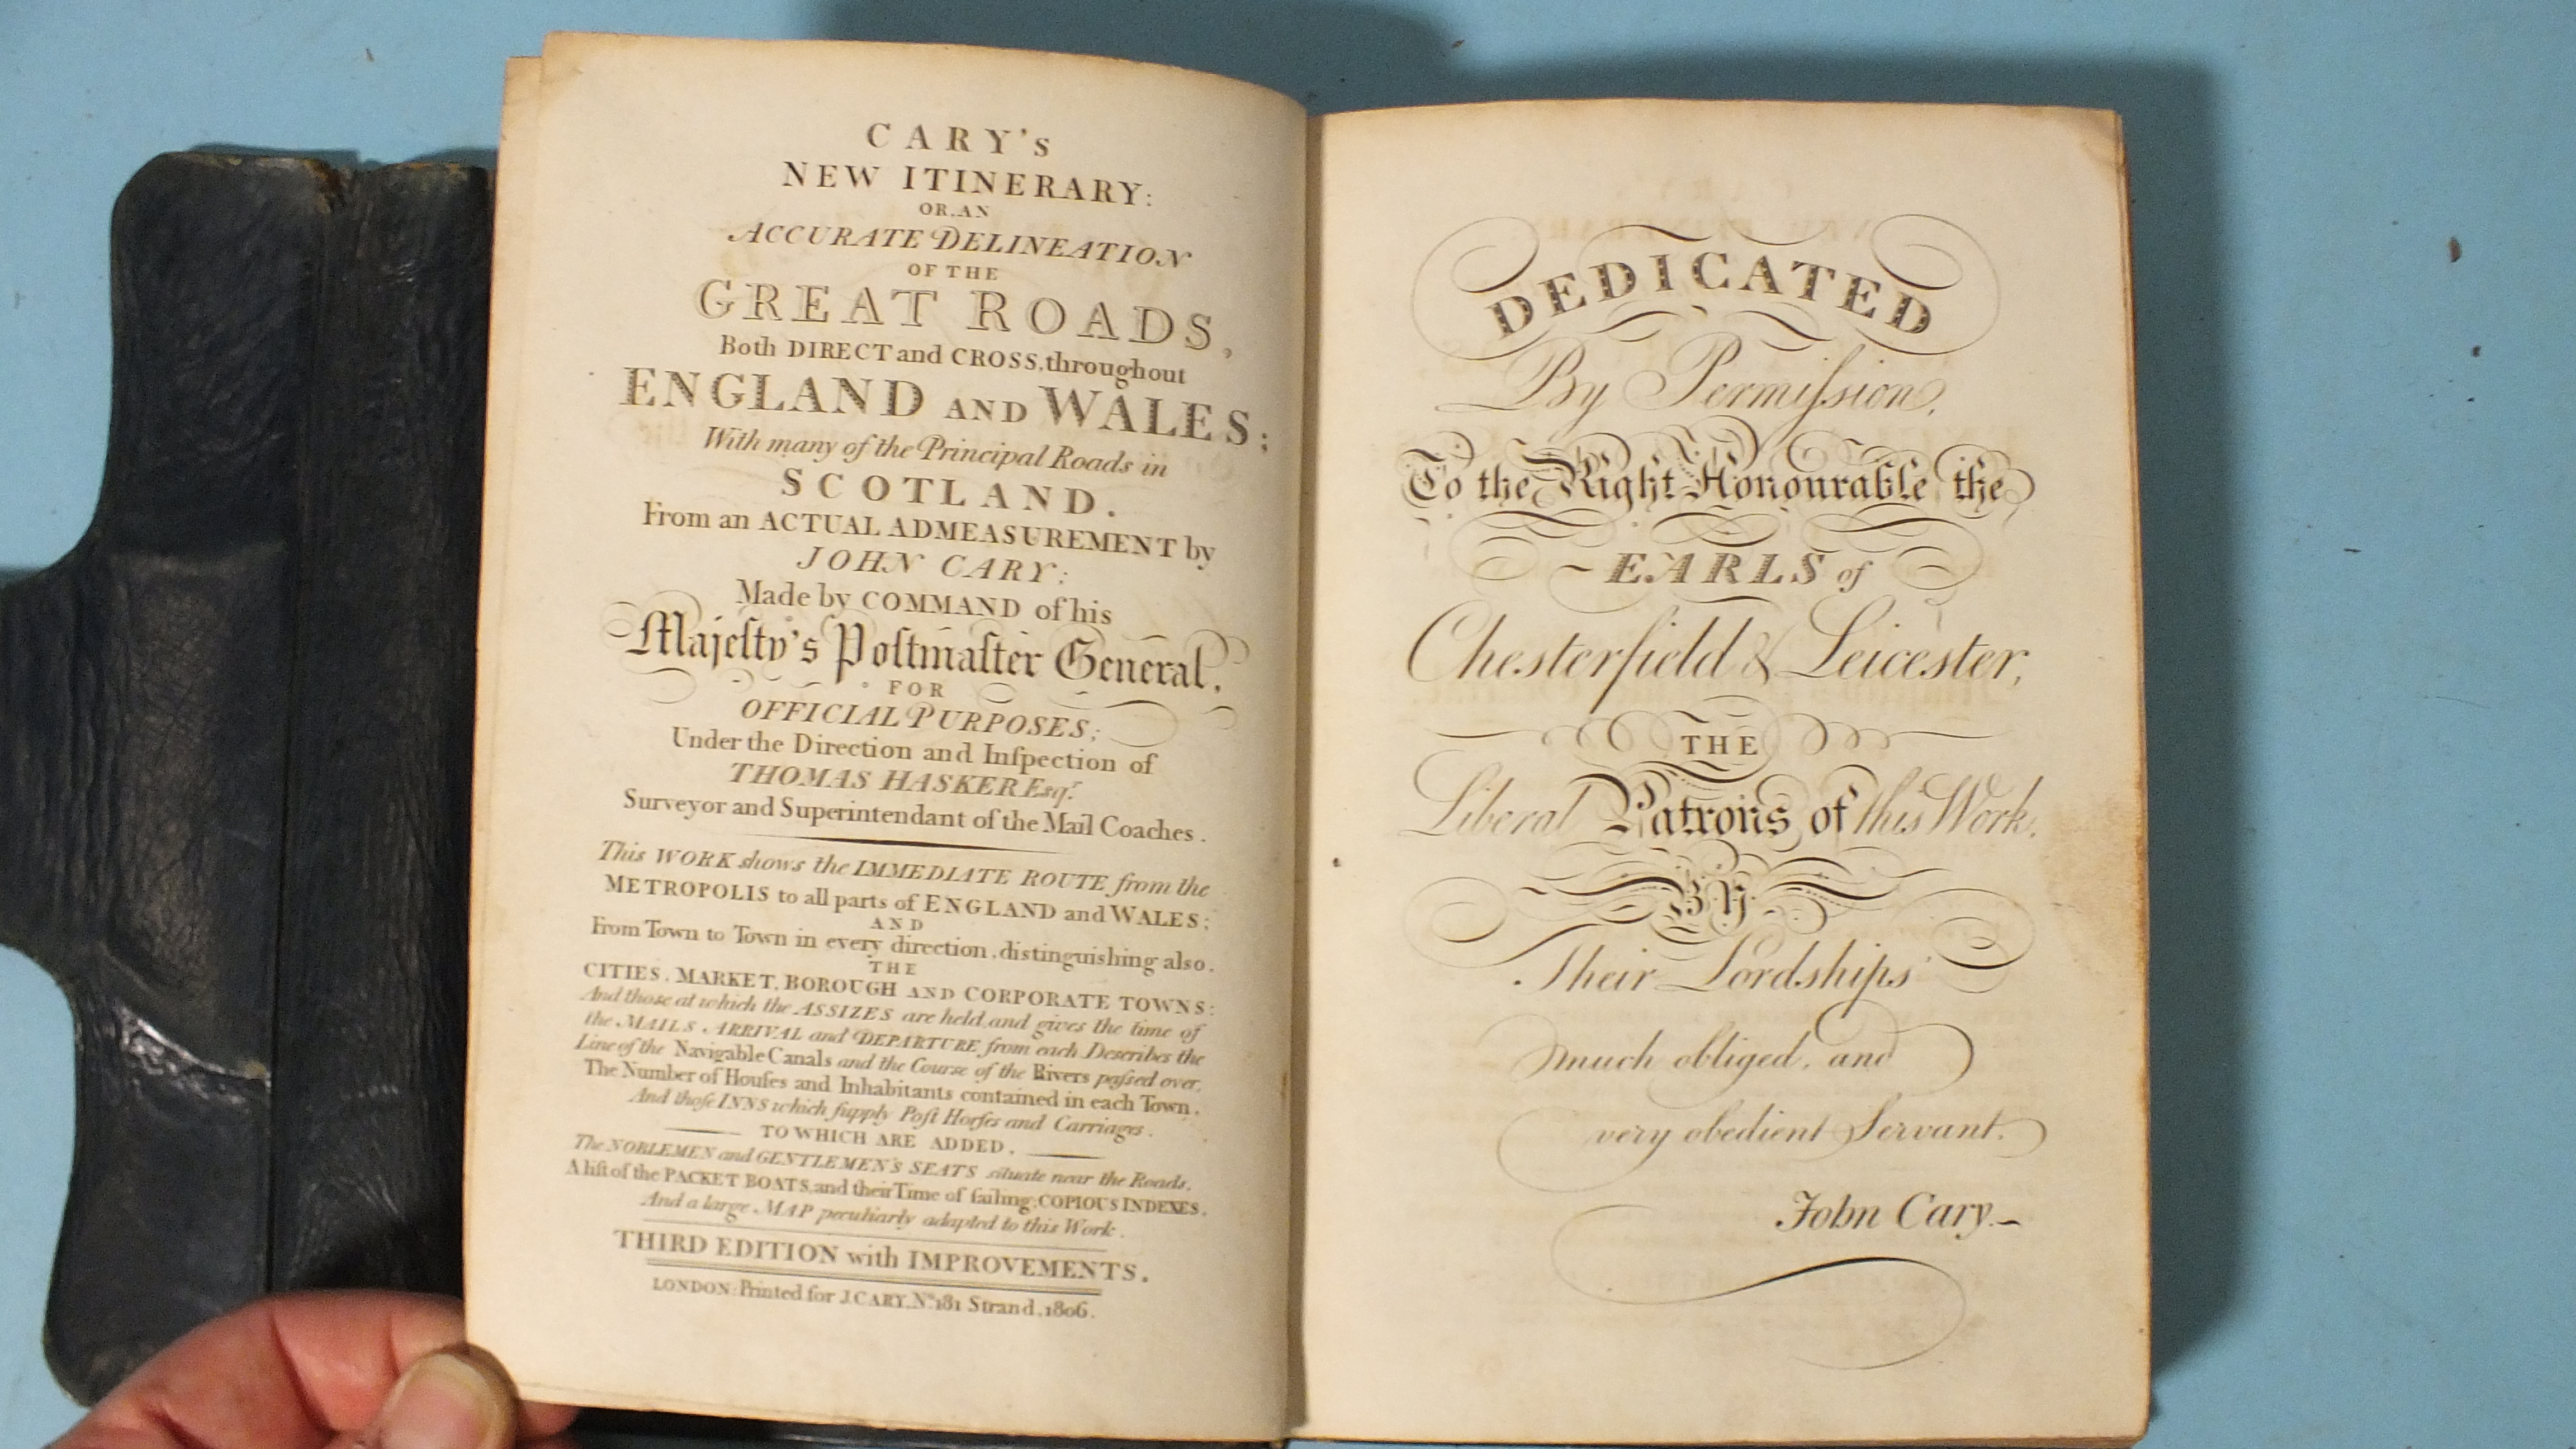 CARY's
NEW ITINERARY:
OR, AN
ACCURATE DELINEATION
OF THE
GREAT ROADS,
Both DIRECT and CROSS, throughout
ENGLAND AND WALES;
With many of the Principal Roads in
SCOTLAND.
From an ACTUAL ADMEASUREMENT by
JOHN CARY;
Made by COMMAND of his
Majeſty's Poſtmaſter General,
FOR
OFFICIAL PURPOSES;
Under the Direction and Inſpection of
THOMAS HASKER Esqr.
Surveyor and Superintendant of the Mail Coaches.
This WORK shows the IMMEDIATE ROUTE from the
METROPOLIS to all parts of ENGLAND and WALES;
AND
From Town to Town in every direction, distinguishing also.
THE
CITIES, MARKET, BOROUGH AND CORPORATE TOWNS:
And those at which the ASSIZES are held, and gives the time of
the MAILS ARRIVAL and DEPARTURE from each Describes the
Line of the Navigable Canals and the Course of the Rivers paſsed over,
The Number of Houſes and Inhabitants contained in each Town,
And thoſe INNS which ſupply Poſt Horſes and Carriages.
TO WHICH ARE ADDED,
The NOBLEMEN and GENTLEMEN'S SEATS situate near the Roads,
A liſt of the PACKET BOATS, and their Time of ſailing; COPIOUS INDEXES,
And a large MAP peculiarly adapted to this Work.
THIRD EDITION with IMPROVEMENTS.
LONDON: Printed for J. CARY, No. 181 Strand, 1806.
DEDICATED
By Permiſsion,
To the Right Honourable the
EARLS of
Chesterfield & Leicester,
THE
Liberal Patrons of this Work,
BY
Their Lordships
much obliged, and
very obedient Servant.
John Cary.